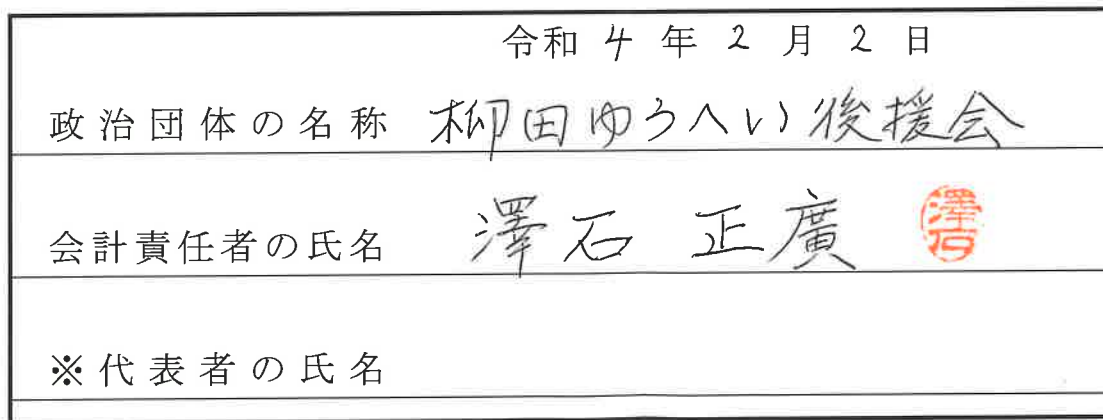 令和 4 年 2 月 2 日
政治団体の名称 柳田ゆうへい後援会
会計責任者の氏名 澤石 正廣 澤石
※代表者の氏名